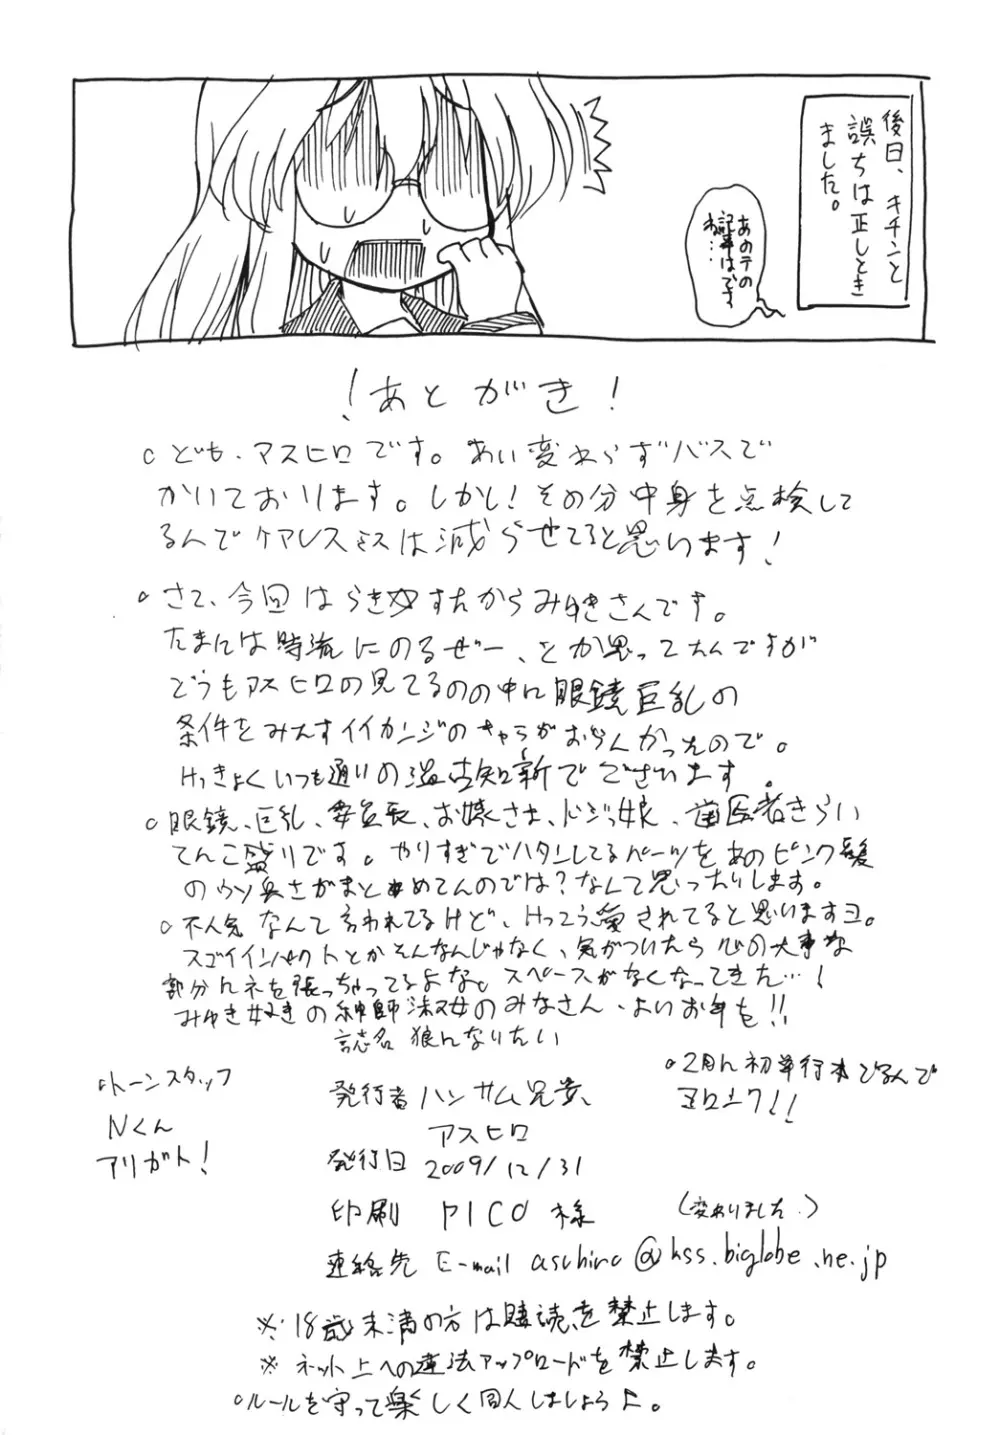 後日、キチンと
誤ちは正しとき
ました。
あのテの
記事はです
ね…
！あとがき！
○ども、アスヒロです。あい変わらずバスで
かいております。しかし！その分中身を点検して
るんでケアレスミスは減らせてると思います！
○さて、今回はらき☆すたからみゆきさんです。
たまには時流にのるぜー、とか思ってたんですが
どうもアスヒロの見てるのの中に眼鏡巨乳の
条件をみたすイイカンジのキャラがおらんかったので。
けっきょくいつも通りの温古知新でございます。
○眼鏡、巨乳、委員長、お嬢さま、ドジっ娘、歯医者きらい
てんこ盛りです。やりすぎでハタンしてるパーツをあのピンク髪
のウソ臭さがまとめてんのでは？なんて思ったりします。
○不人気なんて言われてるけど、けっこう愛されてると思いますヨ。
スゴイインパクトとかそんなんじゃなく、気がついたら心の大事な
部分にネを張っちゃってるよな。スペースがなくなってきた…！
みゆき好きの紳師淑女のみなさん、よいお年を!!
誌名 狼になりたい
○トーンスタッフ
Nくん
アリガト！
発行者 ハンサム兄貴、
アスヒロ
発行日 2009/12/31
印刷 PICO 様
（変わりました。）
連絡先 E-mail asuhiro@kss.biglobe.ne.jp
○2月に初単行本でるんで
ヨロシク!!
※18歳未満の方は購読を禁止します。
※ネット上への違法アップロードを禁止します。
○ルールを守って楽しく同人しましょうよ。